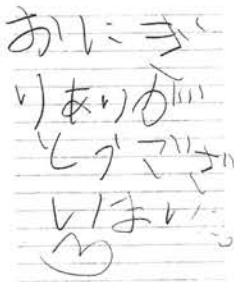 おにぎ
りありが
とうござ
いま